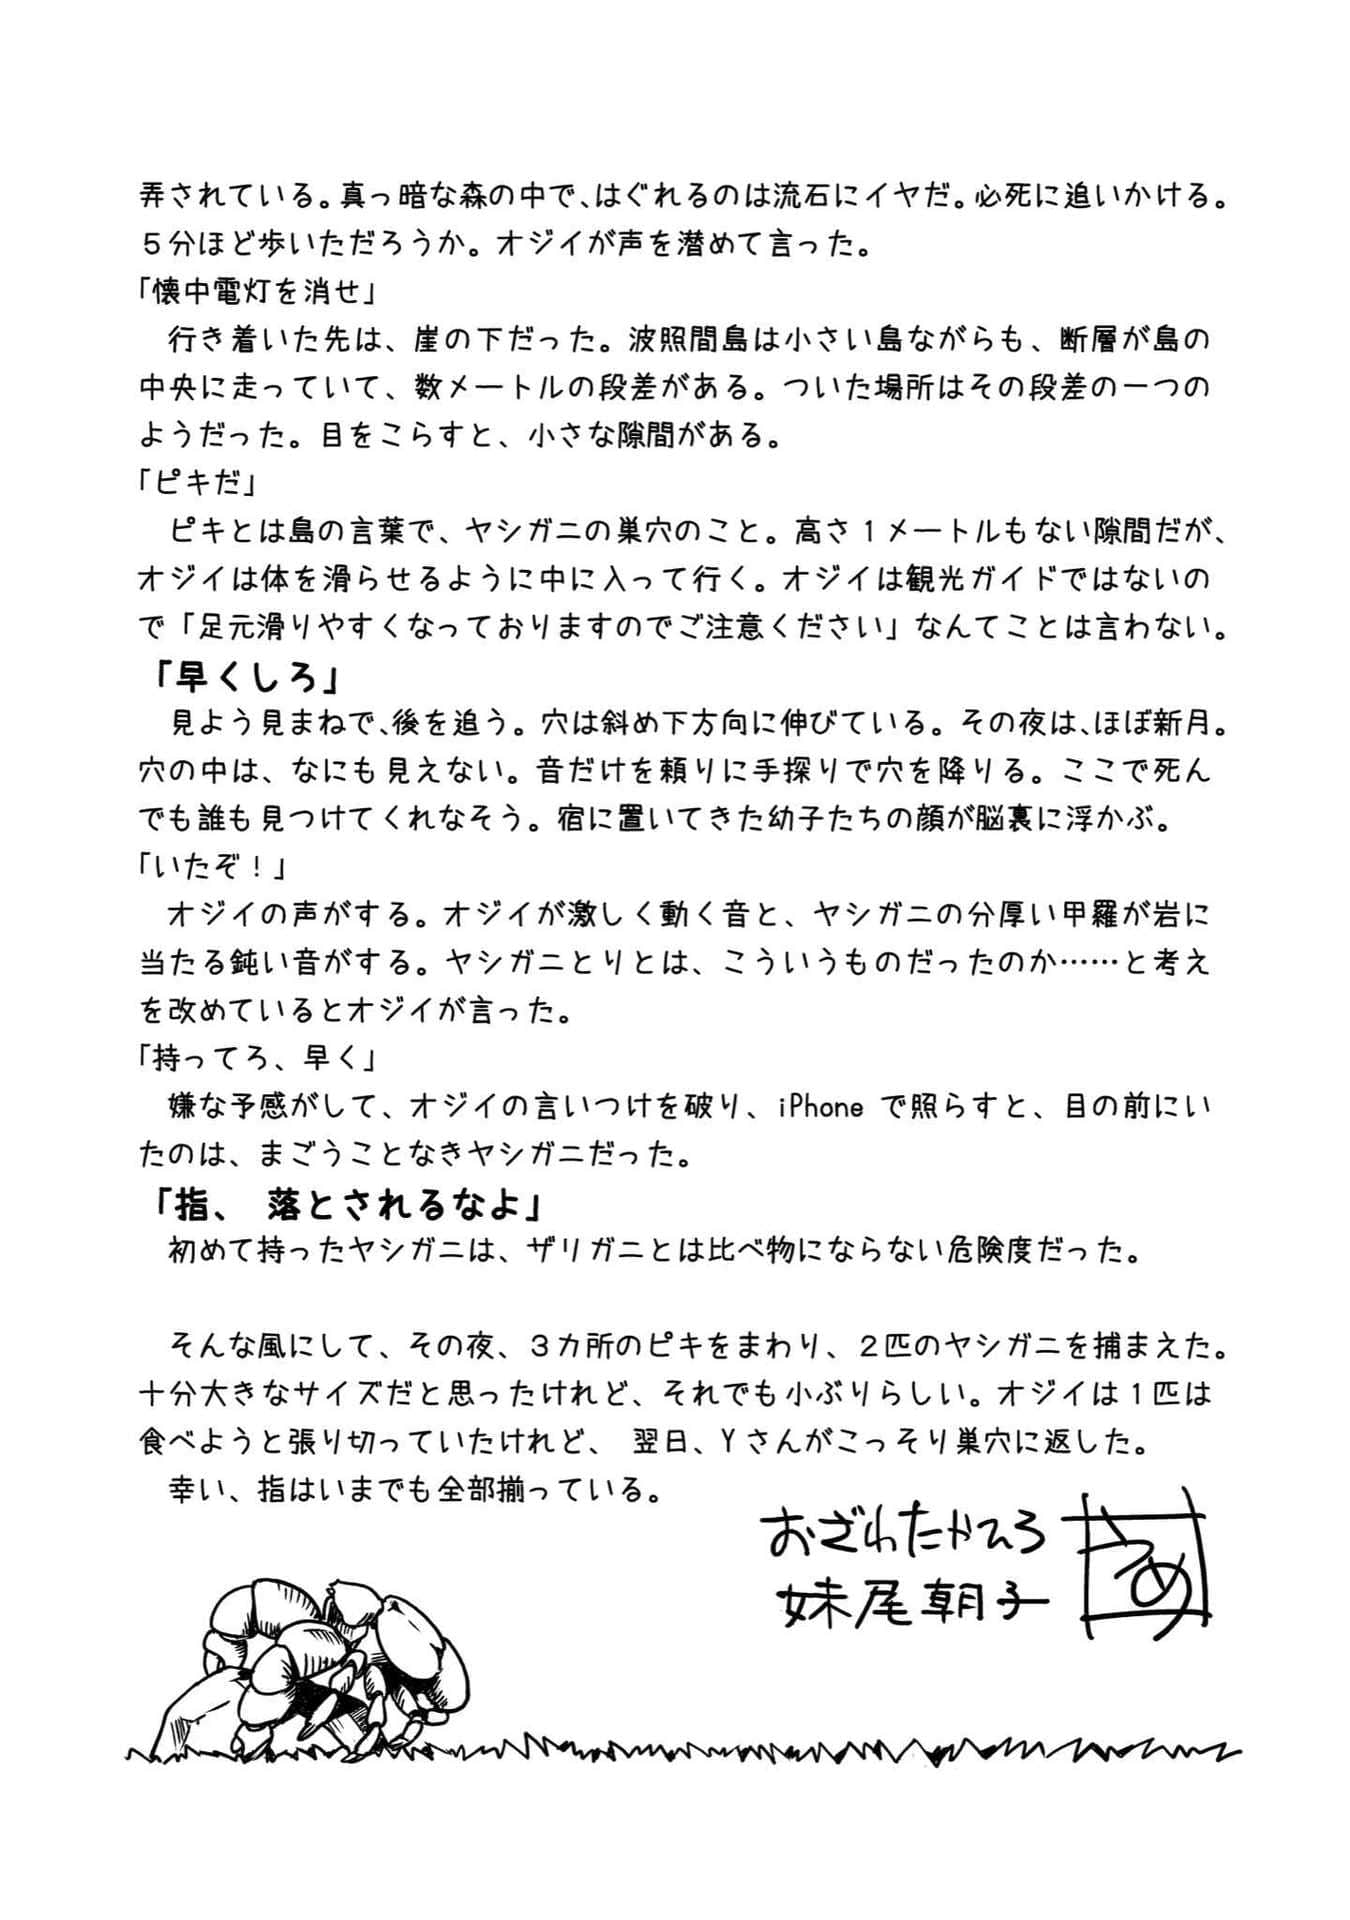 弄されている。真っ暗な森の中で、はぐれるのは流石にイヤだ。必死に追いかける。
５分ほど歩いただろうか。オジイが声を潜めて言った。
「懐中電灯を消せ」
　行き着いた先は、崖の下だった。波照間島は小さい島ながらも、断層が島の
中央に走っていて、数メートルの段差がある。ついた場所はその段差の一つの
ようだった。目をこらすと、小さな隙間がある。
「ピキだ」
　ピキとは島の言葉で、ヤシガニの巣穴のこと。高さ１メートルもない隙間だが、
オジイは体を滑らせるように中に入って行く。オジイは観光ガイドではないの
で「足元滑りやすくなっておりますのでご注意ください」なんてことは言わない。
「早くしろ」
　見よう見まねで、後を追う。穴は斜め下方向に伸びている。その夜は、ほぼ新月。
穴の中は、なにも見えない。音だけを頼りに手探りで穴を降りる。ここで死ん
でも誰も見つけてくれなそう。宿に置いてきた幼子たちの顔が脳裏に浮かぶ。
「いたぞ！」
　オジイの声がする。オジイが激しく動く音と、ヤシガニの分厚い甲羅が岩に
当たる鈍い音がする。ヤシガニとりとは、こういうものだったのか……と考え
を改めているとオジイが言った。
「持ってろ、早く」
　嫌な予感がして、オジイの言いつけを破り、iPhone で照らすと、目の前にい
たのは、まごうことなきヤシガニだった。
「指、 落とされるなよ」
　初めて持ったヤシガニは、ザリガニとは比べ物にならない危険度だった。
　そんな風にして、その夜、３カ所のピキをまわり、２匹のヤシガニを捕まえた。
十分大きなサイズだと思ったけれど、それでも小ぶりらしい。オジイは１匹は
食べようと張り切っていたけれど、 翌日、Ｙさんがこっそり巣穴に返した。
　幸い、指はいまでも全部揃っている。
おざわたかひろ
妹尾朝子
うめ